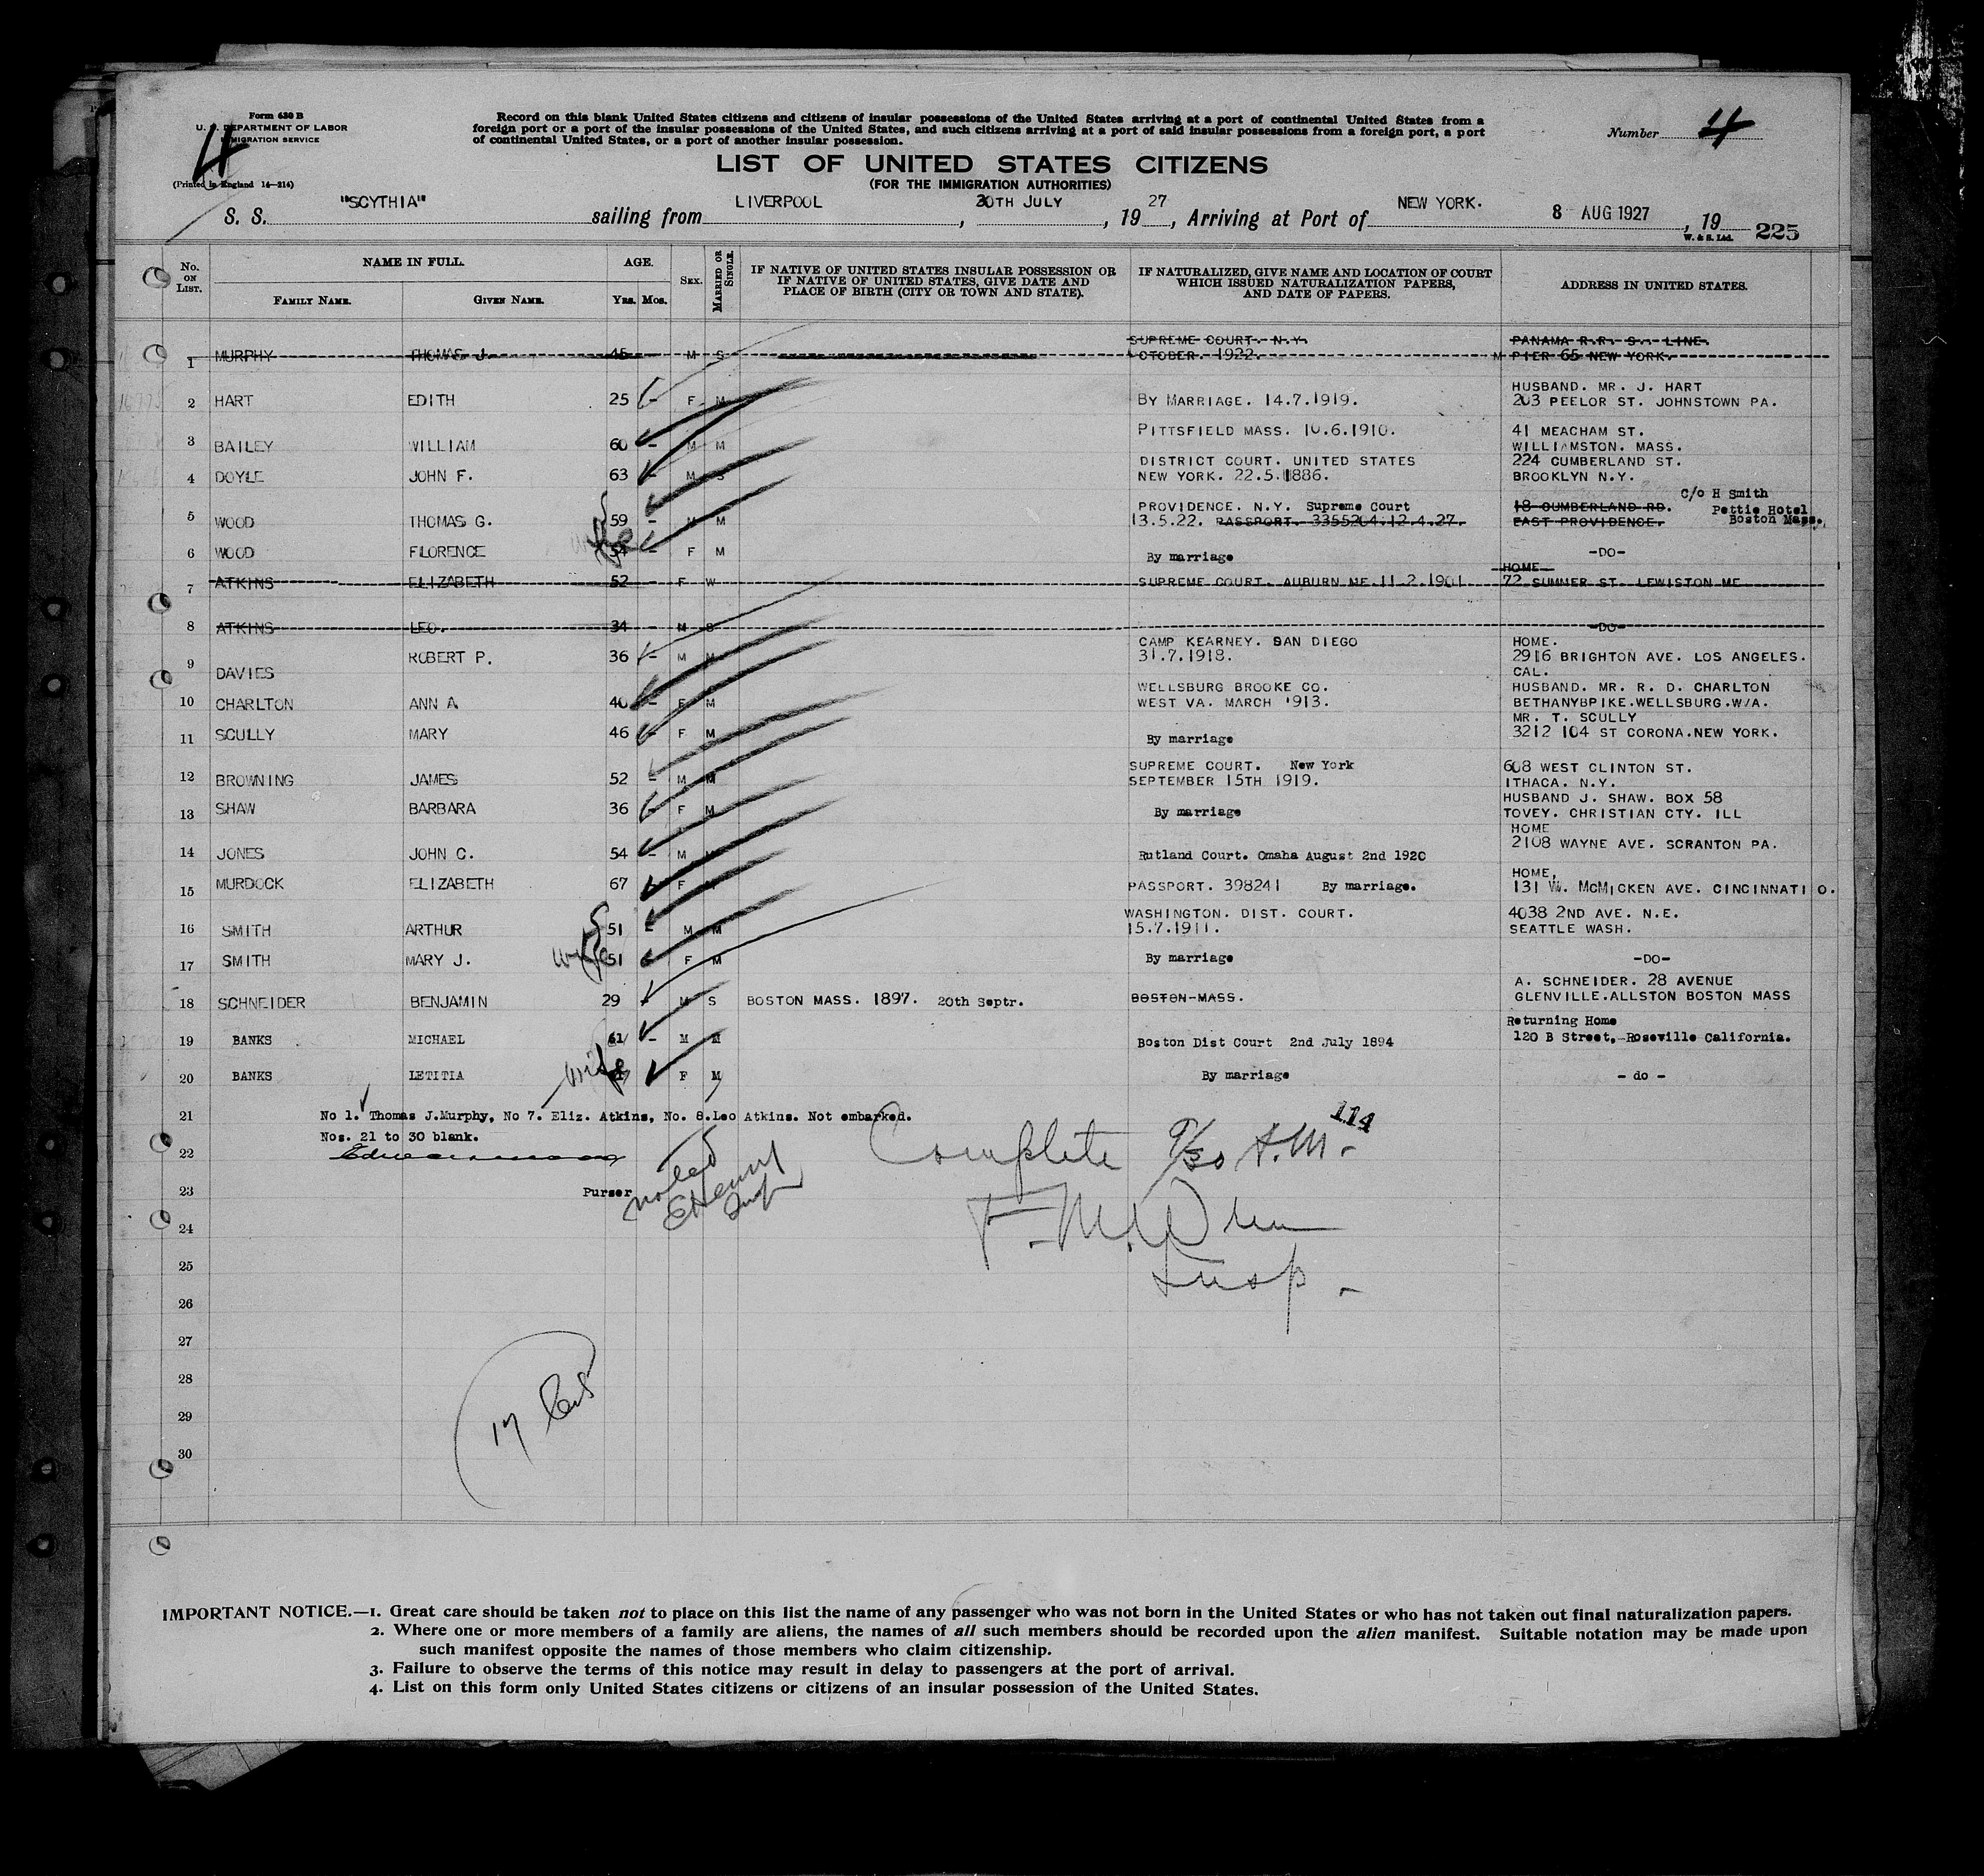 Form 630 B
U. S. DEPARTMENT OF LABOR
IMMIGRATION SERVICE
4
(Printed in England 14—214)
Record on this blank United States citizens and citizens of insular possessions of the United States arriving at a port of continental United States from a
foreign port or a port of the insular possessions of the United States, and such citizens arriving at a port of said insular possessions from a foreign port, a port
of continental United States, or a port of another insular possession.
Number 4
LIST OF UNITED STATES CITIZENS
(FOR THE IMMIGRATION AUTHORITIES)
S. S. "SCYTHIA" sailing from LIVERPOOL, 30TH JULY, 1927, Arriving at Port of NEW YORK. 8 AUG 1927, 19
W. & S. Ltd. 225
No. ON LIST. NAME IN FULL. AGE. SEX. MARRIED OR SINGLE. IF NATIVE OF UNITED STATES INSULAR POSSESSION OR IF NATIVE OF UNITED STATES, GIVE DATE AND PLACE OF BIRTH (CITY OR TOWN AND STATE). IF NATURALIZED, GIVE NAME AND LOCATION OF COURT WHICH ISSUED NATURALIZATION PAPERS, AND DATE OF PAPERS. ADDRESS IN UNITED STATES.
FAMILY NAME. GIVEN NAME. Yrs. Mos.
1 MURPHY THOMAS J. 45 - M S SUPREME COURT. N.Y. OCTOBER. 1922. PANAMA R.R. S.. LINE. PIER 65 NEW YORK.
2 HART EDITH 25 - F M BY MARRIAGE. 14.7.1919. HUSBAND. MR. J. HART 203 PEELOR ST. JOHNSTOWN PA.
3 BAILEY WILLIAM 60 - M M PITTSFIELD MASS. 10.6.1910. 41 MEACHAM ST. WILLIAMSTON. MASS.
4 DOYLE JOHN F. 63 - M S DISTRICT COURT. UNITED STATES NEW YORK. 22.5.1886. 224 CUMBERLAND ST. BROOKLYN N.Y.
5 WOOD THOMAS G. 59 - M M PROVIDENCE. N.Y. Supreme Court 13.5.22. PASSPORT. 3355204.12.4.27. 18 CUMBERLAND RD. EAST PROVIDENCE. C/o H Smith Pettie Hotel Boston Mass.
6 WOOD FLORENCE wife 54 - F M By marriage -DO-
7 ATKINS ELIZABETH 52 - F W SUPREME COURT. AUBURN ME. 11.2.1901 HOME 72 SUMMER ST. LEWISTON ME
8 ATKINS LEO. 34 - M S -DO-
9 DAVIES ROBERT P. 36 - M M CAMP KEARNEY. SAN DIEGO 31.7.1918. HOME. 2916 BRIGHTON AVE. LOS ANGELES. CAL.
10 CHARLTON ANN A 40 - F M WELLSBURG BROOKE CO. WEST VA. MARCH 1913. HUSBAND. MR. R. D. CHARLTON BETHANYBPIKE.WELLSBURG.W/A.
11 SCULLY MARY 46 - F M By marriage MR. T. SCULLY 3212 104 ST CORONA.NEW YORK.
12 BROWNING JAMES 52 - M M SUPREME COURT. New York SEPTEMBER 15TH 1919. 608 WEST CLINTON ST. ITHACA. N.Y.
13 SHAW BARBARA 36 - F M By marriage HUSBAND J. SHAW. BOX 58 TOVEY. CHRISTIAN CTY. ILL
14 JONES JOHN C. 54 - M M Rutland Court. Omaha August 2nd 1920 HOME 2108 WAYNE AVE. SCRANTON PA.
15 MURDOCK ELIZABETH 67 F PASSPORT. 398241 By marriage. HOME, 131 W. McMICKEN AVE. CINCINNATI O.
16 SMITH ARTHUR 51 - M M WASHINGTON. DIST. COURT. 15.7.1911. 4038 2ND AVE. N.E. SEATTLE WASH.
17 SMITH MARY J. wife 51 F M By marriage -DO-
18 SCHNEIDER BENJAMIN 29 - M S BOSTON MASS. 1897. 20th Septr. BOSTON-MASS. A. SCHNEIDER. 28 AVENUE GLENVILLE.ALLSTON BOSTON MASS
19 BANKS MICHAEL 61 - M M Boston Dist Court 2nd July 1894 Returning Home 120 B Street, Roseville California.
20 BANKS LETITIA wife F M By marriage - do -
21 No 1. Thomas J.Murphy, No 7. Eliz. Atkins, No. 8.Leo Atkins. Not embarked.
Nos. 21 to 30 blank.
114
22 Complete 9/30 A.M.
23 Purser noted
24
25 Insp.
26
27
28
29 17
30
IMPORTANT NOTICE.—1. Great care should be taken not to place on this list the name of any passenger who was not born in the United States or who has not taken out final naturalization papers.
2. Where one or more members of a family are aliens, the names of all such members should be recorded upon the alien manifest. Suitable notation may be made upon
such manifest opposite the names of those members who claim citizenship.
3. Failure to observe the terms of this notice may result in delay to passengers at the port of arrival.
4. List on this form only United States citizens or citizens of an insular possession of the United States.